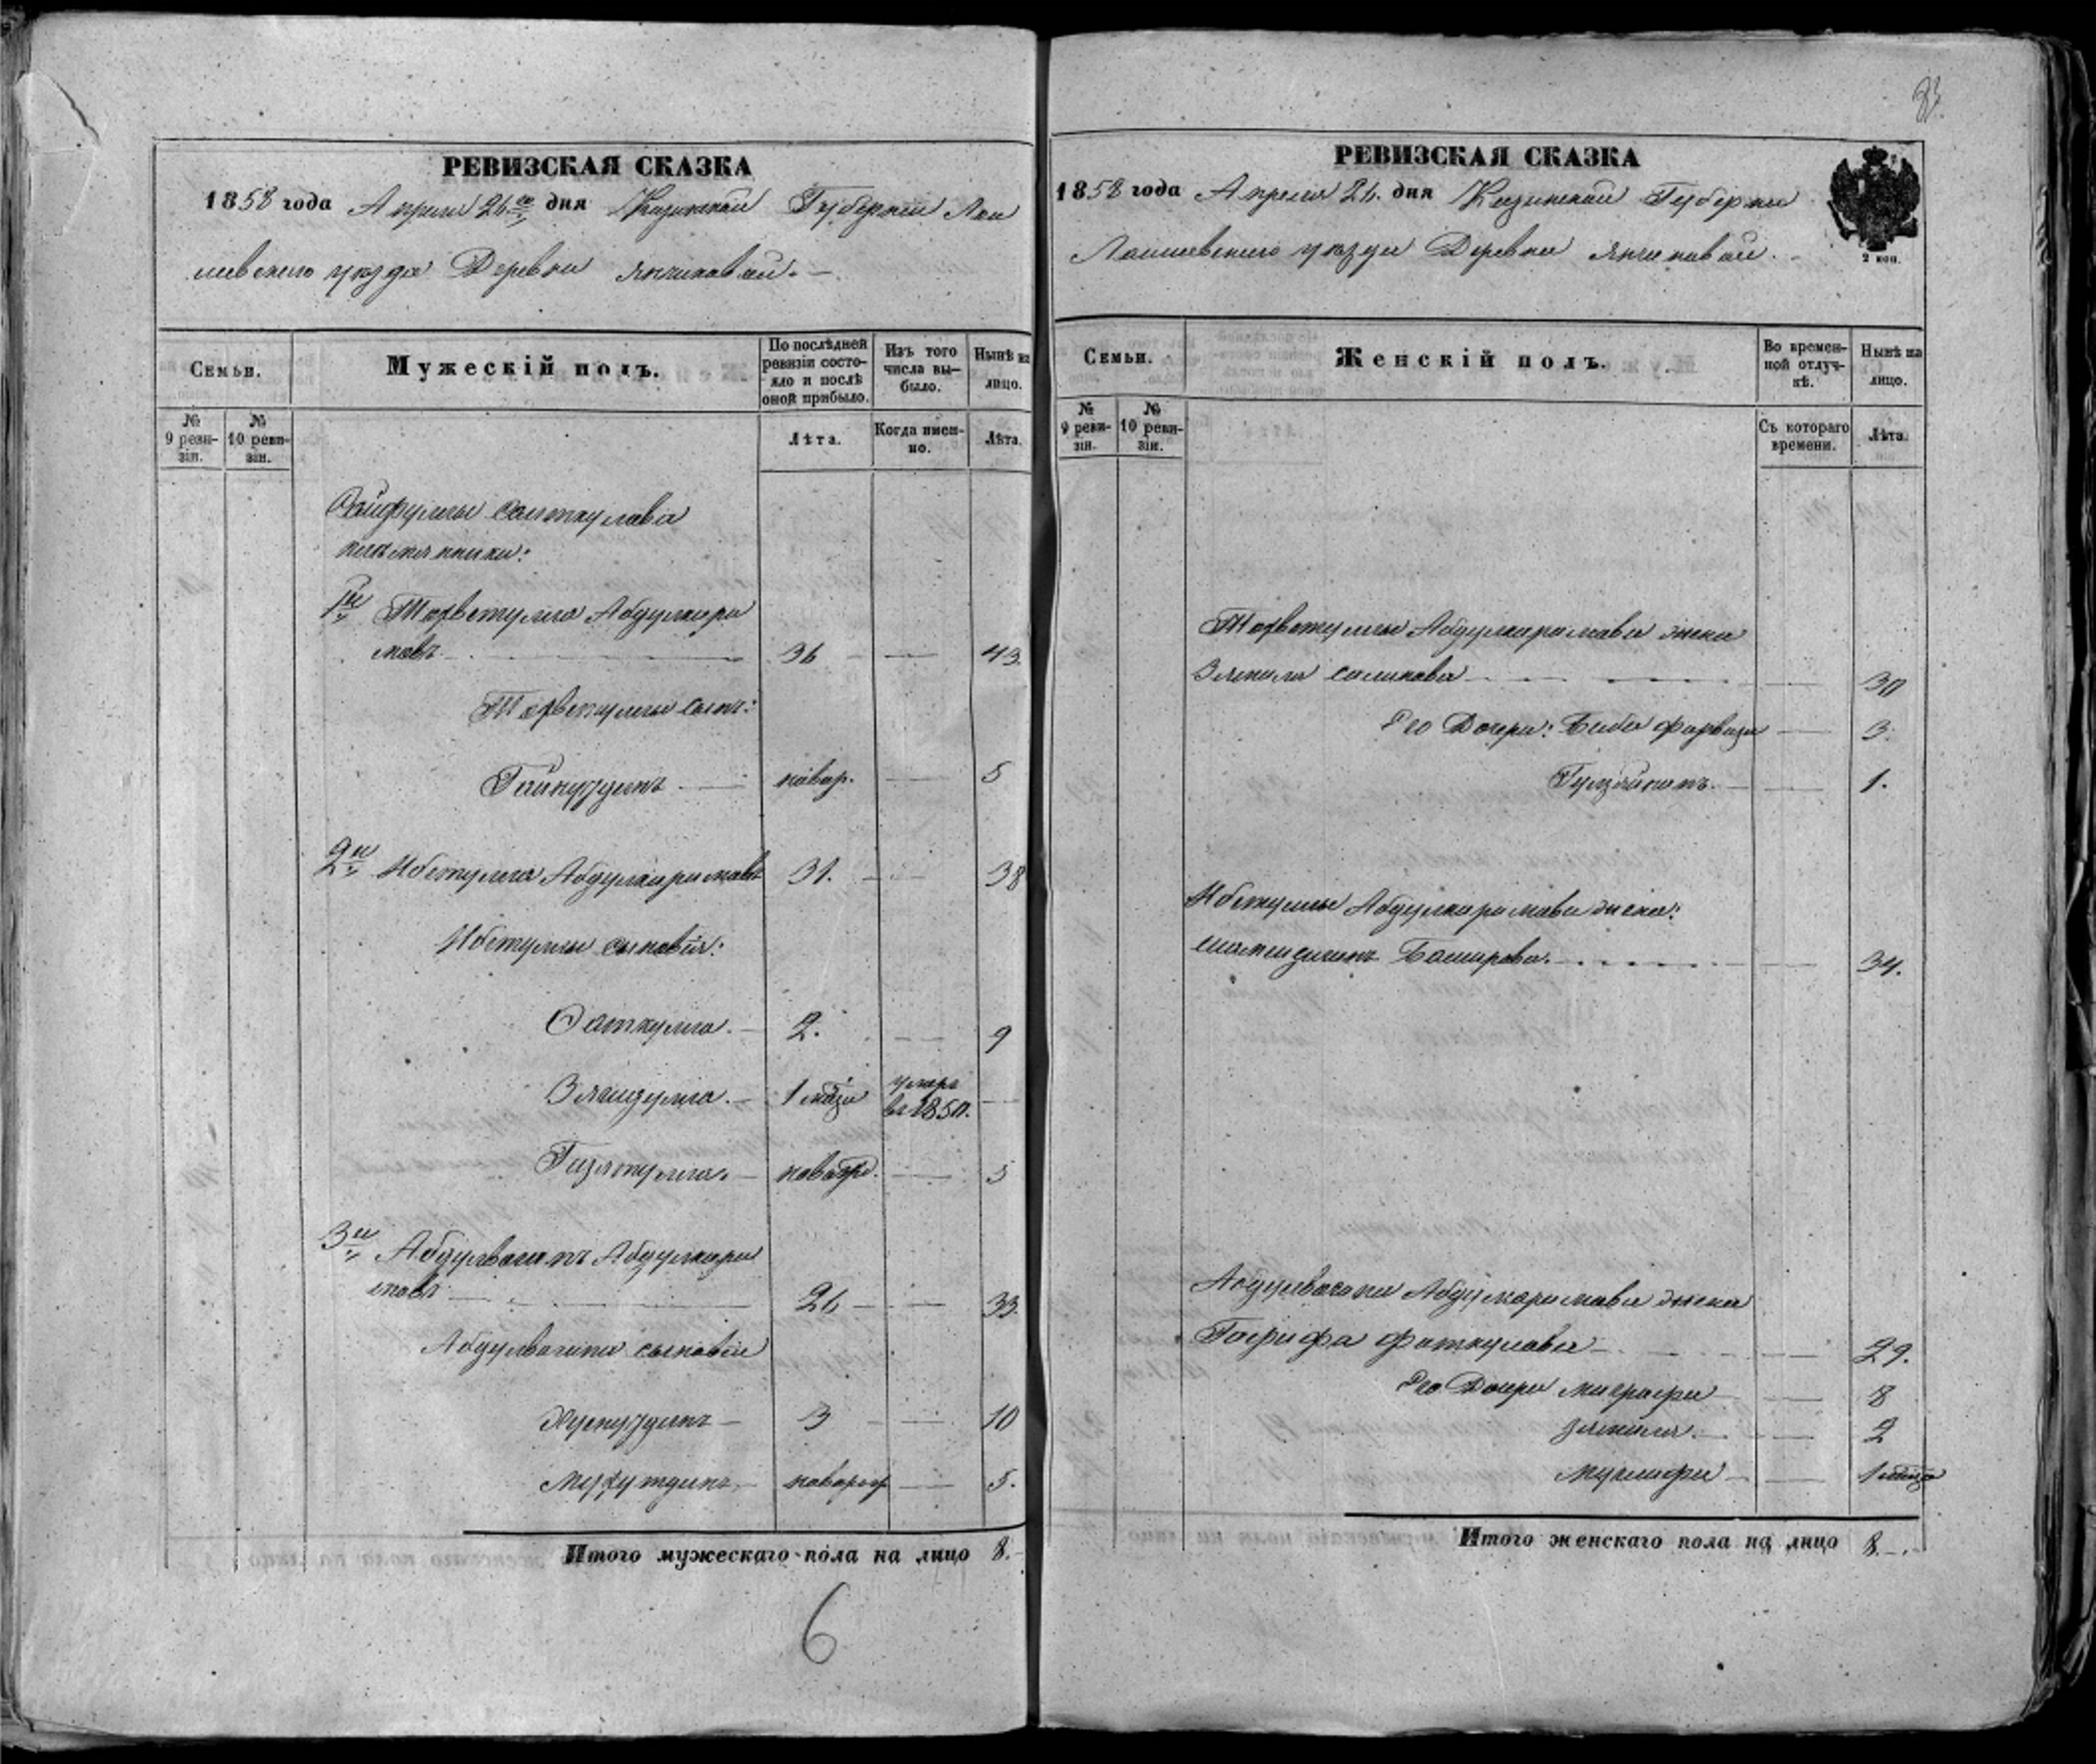 РЕВИЗСКАЯ СКАЗКА
1858 года Апреля 26го дня Казанской Губернии Лаи
шевского уезда Деревни Янчиковой.
Семьи.
Мужескій полъ.
По послѣдней ревизіи состояло и послѣ оной прибыло.
Изъ того числа выбыло.
Нынѣ на лицо.
№ 9 ревизіи.
№ 10 ревизіи.
Лѣта.
Когда именно.
Лѣта.
Сайфуллы Саиткулова
племянники:
1й Тохветулла Абдулкари
мовъ 36 43.
Тохветуллы сынъ:
Гайнуддинъ новор. 5
2й Ибетулла Абдулкаримовъ 31. 38
Ибетуллы сыновья:
Саткулла. 2. 9
1 мѣся умеръ въ 1850.
Гизятулла. новоро. 5
3й Абдулвагапъ Абдулкари
мовъ 26 33.
Абдулвагапа сыновья
Хуснуддинъ 3 10
новорож 5.
Итого мужескаго пола на лицо 8.
6
83.
РЕВИЗСКАЯ СКАЗКА
1858 года Апреля 26. дня Казанской Губернии
Лаишевского уезда Деревни Янчиковой.
2 коп.
Семьи.
Женскій полъ.
Во временной отлучкѣ.
Нынѣ на лицо.
№ 9 ревизіи.
№ 10 ревизіи.
Съ котораго времени.
Лѣта.
Тохветуллы Абдулкаримова жена
Зямиля Салихова 30
Его Дочери: Биби Фарваза 3.
1.
Ибетуллы Абдулкаримова жена:
Баширова. 34.
Абдулвагапа Абдулкаримова жена
Гарифа Фаткулова 29.
Его Дочери Миграфи 8
Зямиля. 2
1 мѣся
Итого женскаго пола на лицо 8.